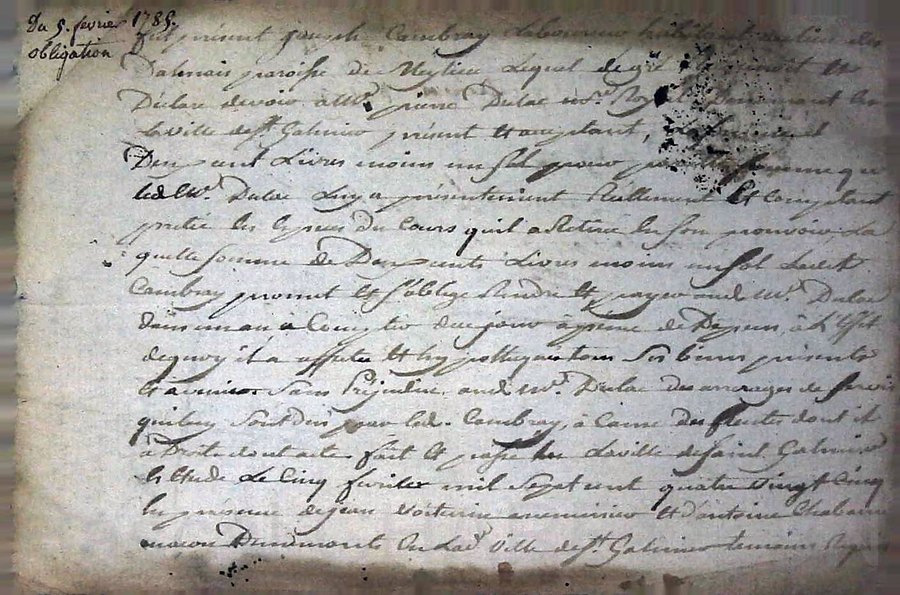 Du 5. fevrier 1785.
obligation
fut présent Joseph Cambray laboureur habitant
paroisse de Meylieu lequel de gré
Déclare devoir à Mr. pierre Dulac no.re Royal Demeurant en
la ville de st. Galmier présent et acceptant, la somme
Deux cent Livres moins un sol pour
led. Mr. Dulac Luy a présentement Réellement et Comptant
pretée en espèces du Cours qu'il a Retirée En Son pouvoir, La
quelle somme de Deux cents Livres moins un sol Ledit
Cambray promet et s'oblige Rendre et payer aud. Mr. Dulac
dans un an à Compter de ce jour à peine de Depens, à L'effet
de quoy il a affecté et hypothequé tous Ses biens présents
et avenir Sans Préjudice aud. Mr. Dulac des arrerages de
qui luy Sont dus par led. Cambray, à Cause des dont il
à Droit dont acte fait et passé en La ville de saint Galmier
en Etude Le Cinq fevrier mil Sept cent quatre vingt Cinq
En présence de jean et d'antoine
Demeurants En Lad. Ville de st. Galmier temoins